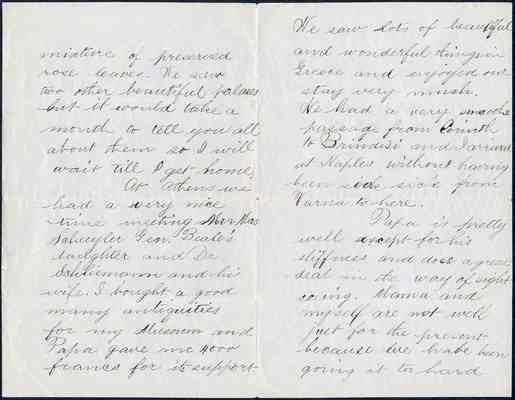 mixture of preserved
rose leaves. We saw
two other beautiful palaces
but it would take a
month to tell you all
about them so I will
wait till I get home.
At Athens we
had a very nice
time meeting Mrs
Schuyler Gen. Beale's
daughter and Dr
Schliemann and his
wife. I bought a good
many antiquities
for my Museum and
Papa gave me 4000
francs for its support.
We saw lots of beautiful
and wonderful things in
Greece and enjoyed our
stay very much.
We had a very smoothe
passage from Corinth
to Brindisi and I arrived
at Naples without having
been sick once from
Varna to here.
Papa is pretty
well except for his
stiffness and does a great
deal in the way of sight
seeing. Mama and
myself are not well
just for the present
because we have been
going it to hard